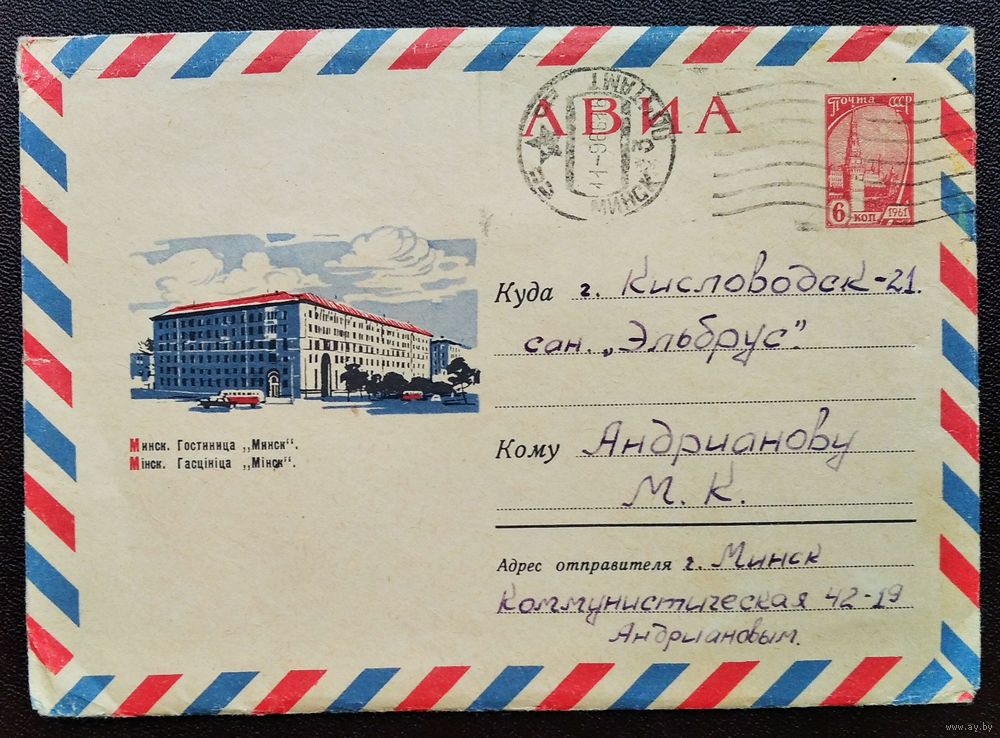 АВИА
ПОЧТА СССР
6 КОП 1961
МИНСК
Куда г. Кисловодск-21.
сан. „Эльбрус".
Кому Андрианову
М. К.
Минск. Гостиница „Минск“.
Мінск. Гасцініца „Мінск“.
Адрес отправителя г. Минск
Коммунистическая 42-19
Андриановым.
www.ay.by